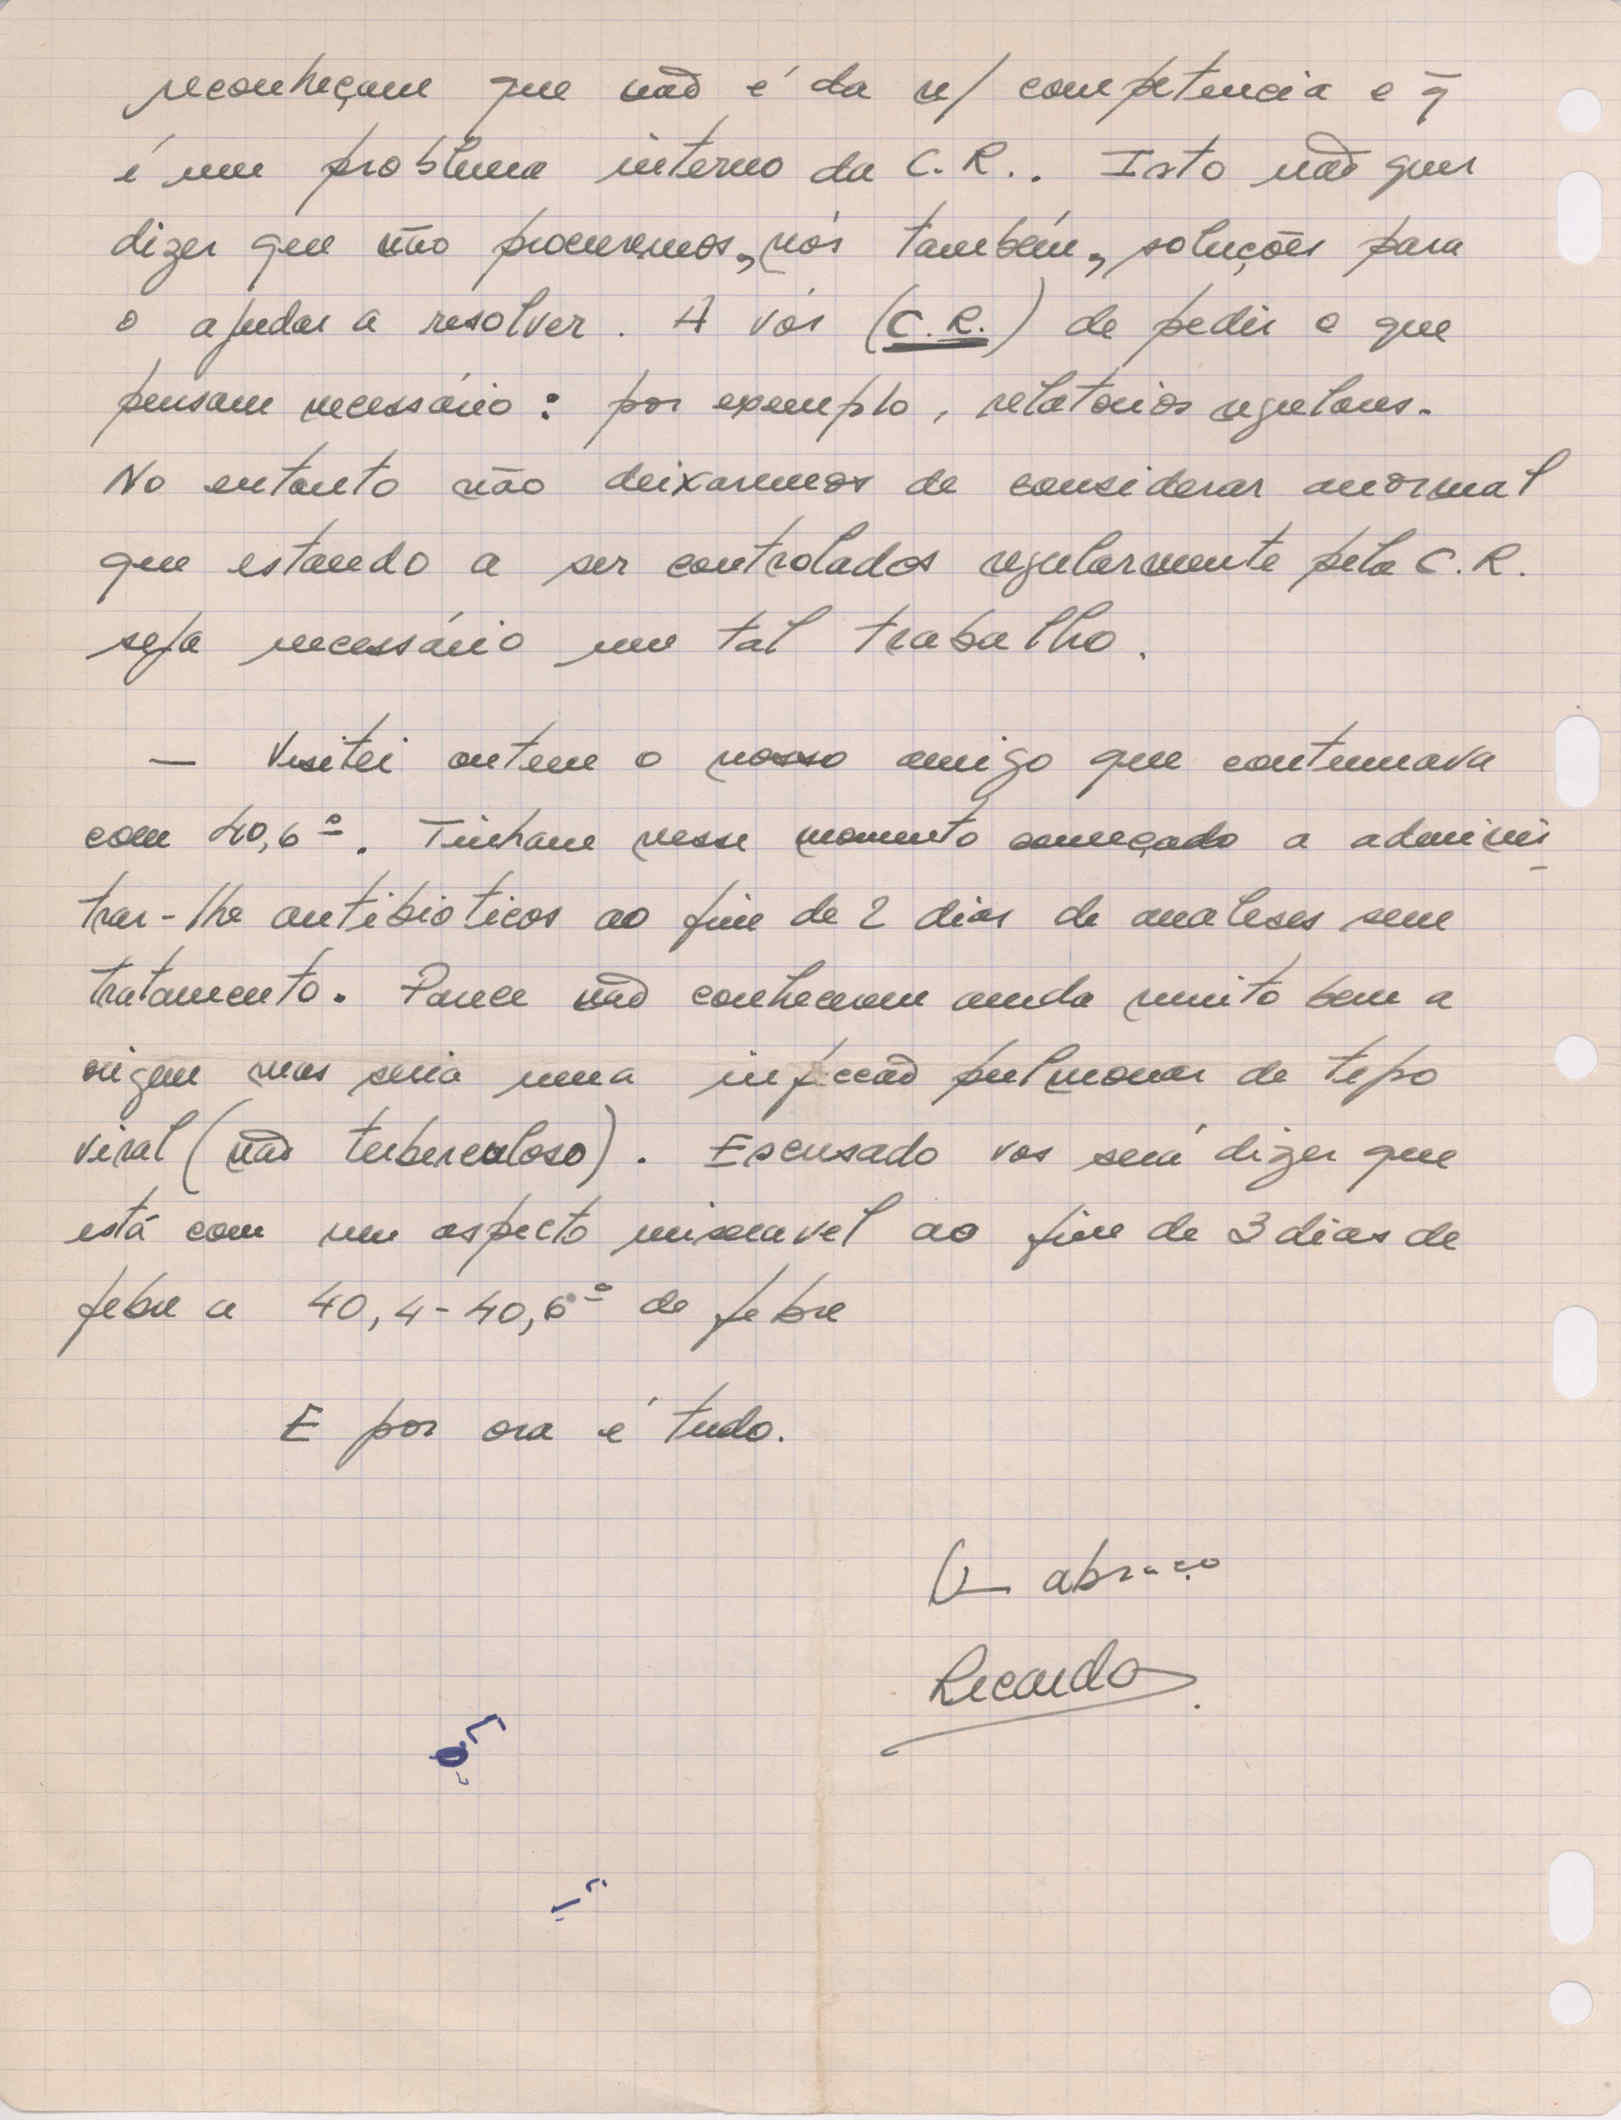 reconheçam que não é da n/ competencia e q̄
é um problema interno da C.R.. Isto não quer
dizer que não procuremos, nós também, soluções para
o ajudar a resolver. A vós (C.R.) de pedir o que
pensam necessário: por exemplo, relatorios regulares.
No entanto não deixaremos de considerar anormal
que estando a ser controlados regularmente pela C.R.
seja necessário um tal trabalho.
— Visitei ontem o nosso amigo que continuava
com 40,6º. Tinham nesse momento começado a adminis
trar-lhe antibioticos ao fim de 2 dias de analises sem
tratamento. Parece não conhecerem ainda muito bem a
origem mas seria uma infecção pulmonar de tipo
viral (não tuberculoso). Escusado vos será dizer que
está com um aspecto miseravel ao fim de 3 dias de
febre a 40,4-40,6º de febre
E por ora é tudo.
Um abraço
Ricardo